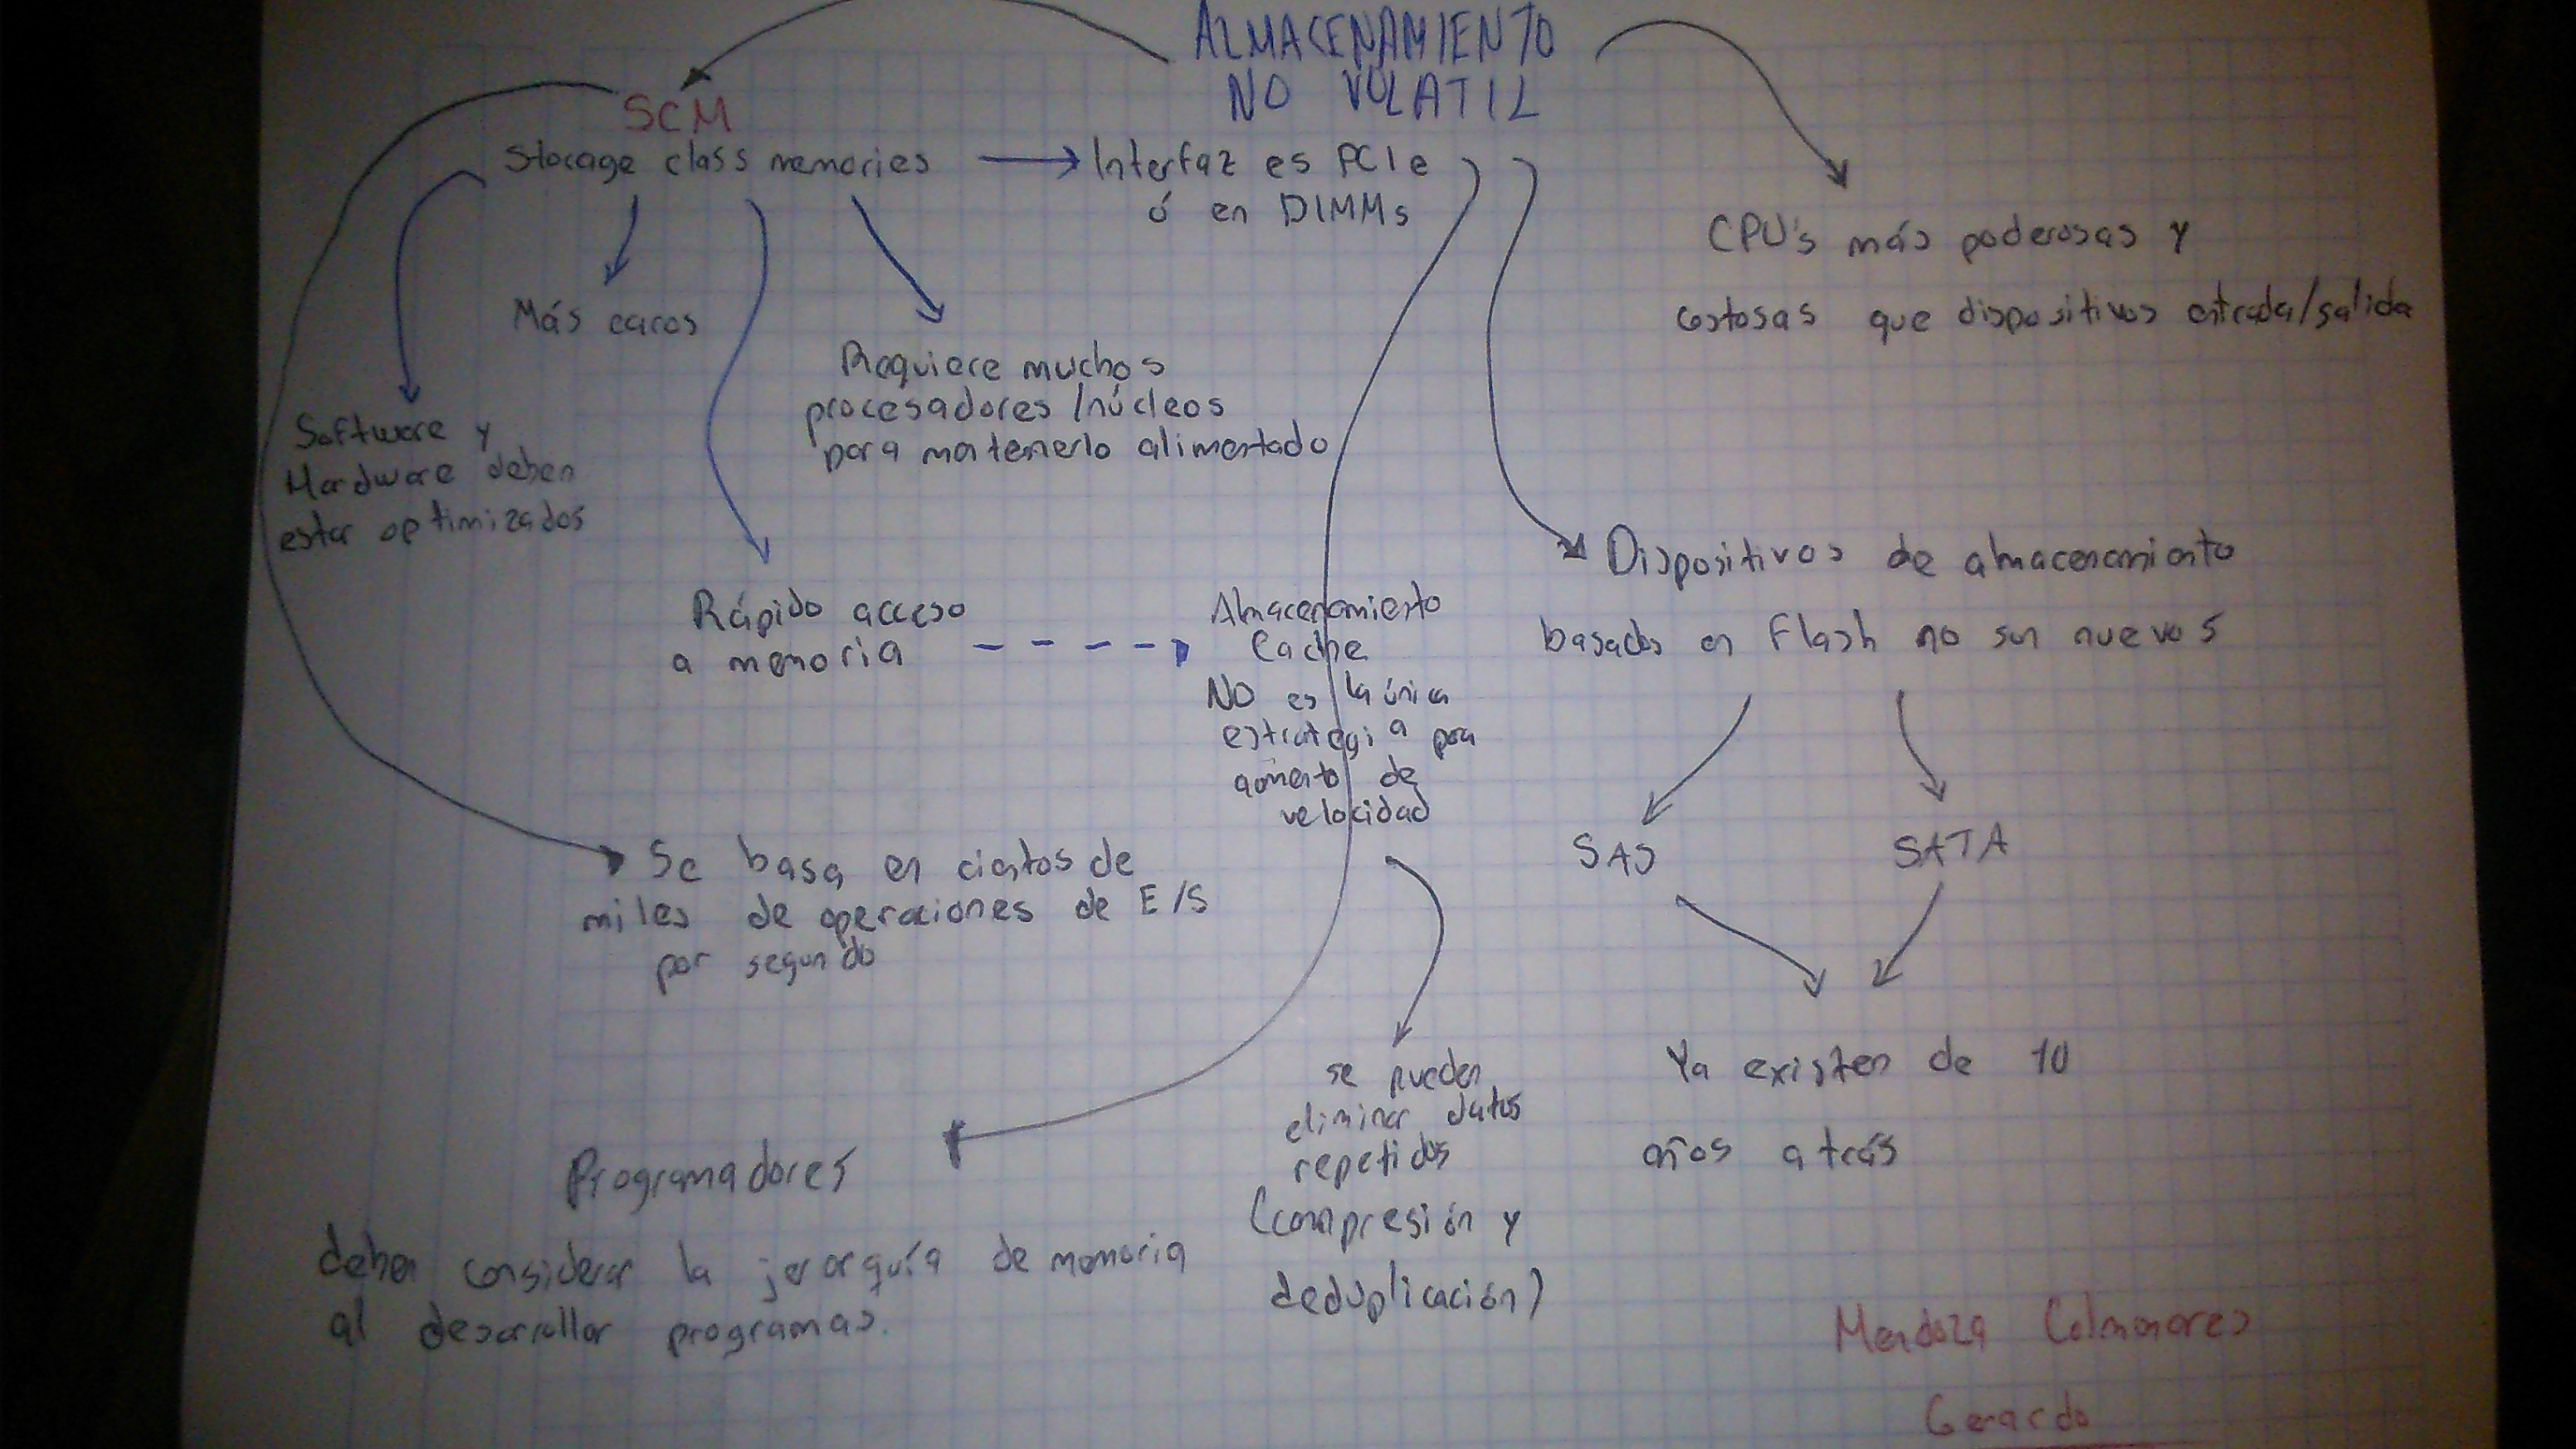 ALMACENAMIENTO
NO VOLATIL
SCM
Storage class memories
Interfaz es PCIe
ó en DIMMs
CPU's más poderosas y
costosas que dispositivos entrada/salida
Más caros
Requiere muchos
procesadores/núcleos
para matenerlo alimentado
Software y
Hardware deben
estar optimizados
Rápido acceso
a memoria
Almacenamiento
Cache
NO es la única
estrategia para
aumento de
velocidad
Dispositivos de almacenamiento
basados en Flash no son nuevos
SAS
SATA
Se basa en cientos de
miles de operaciones de E/S
por segundo
Ya existen de 10
años atrás
se pueden
eliminar datos
repetidos
(compresión y
deduplicación)
Programadores
deben considerar la jerarquía de memoria
al desarrollar programas.
Mendoza Colmenares
Gerardo